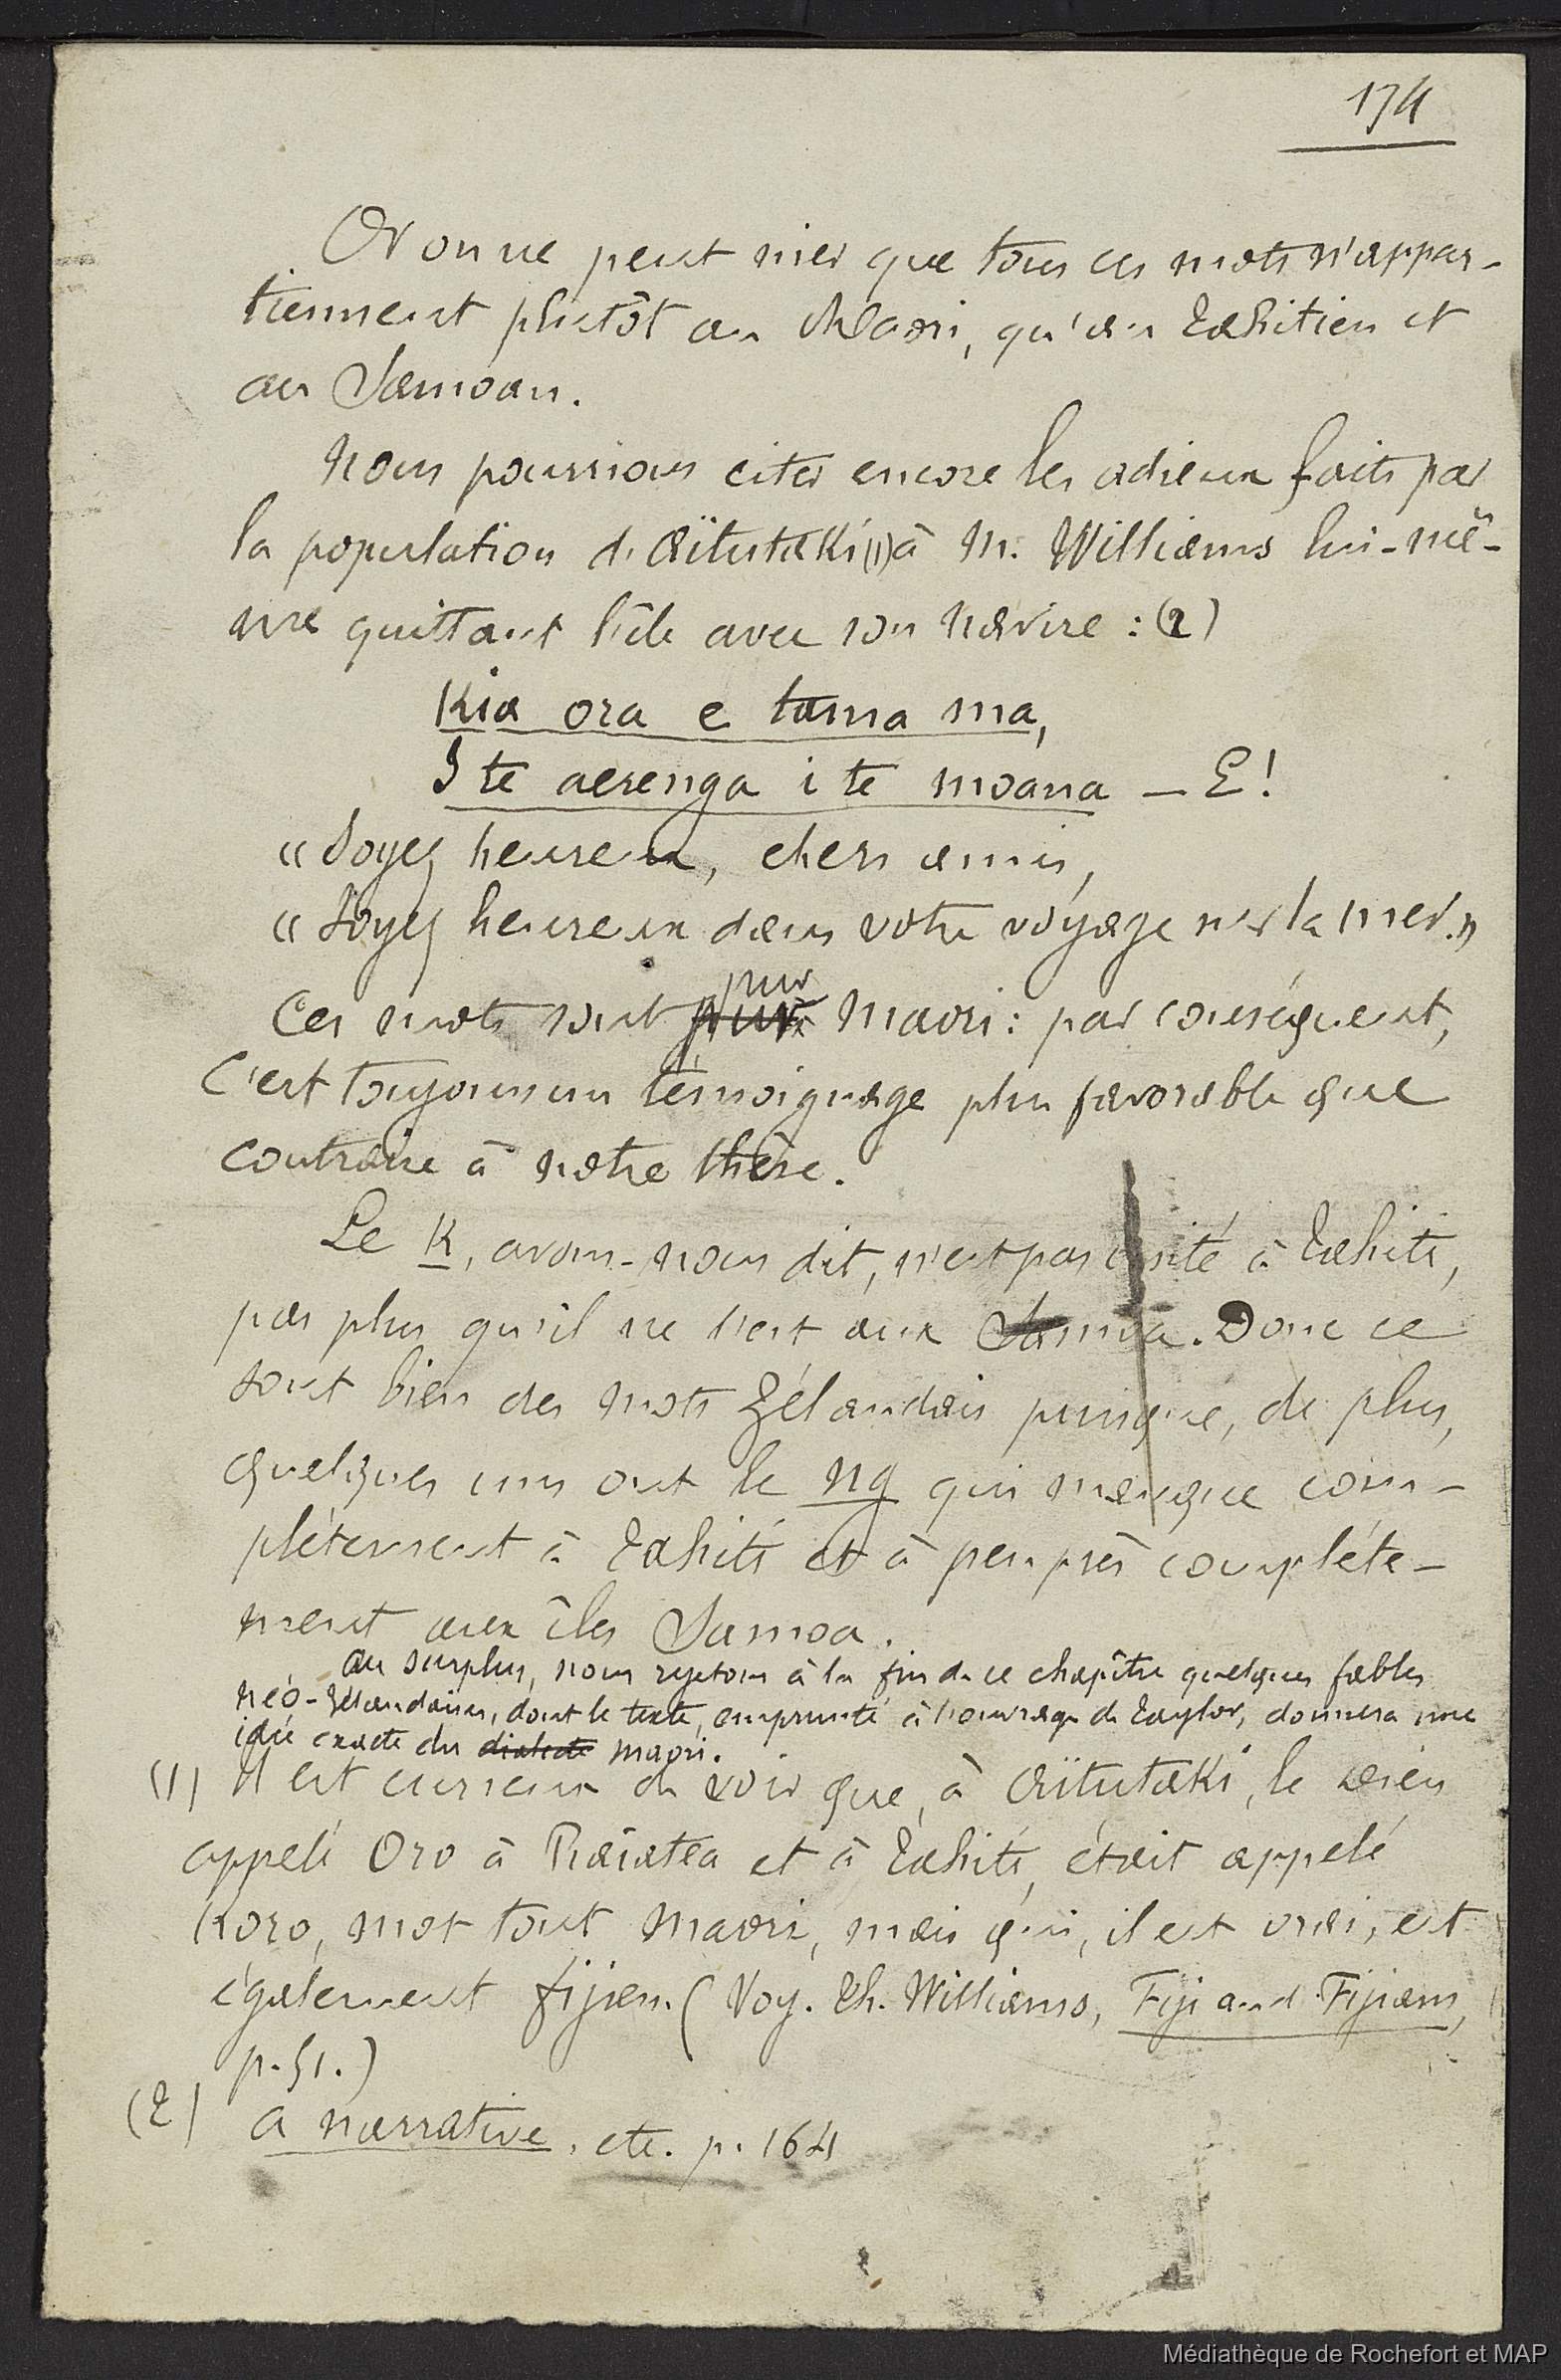 174
Or on ne peut nier que tous ces mots n'appar-
tiennent plutôt au Maori, qu'au Tahitien et
au Samoan.
Nous pourrions citer encore les adieux faits par
la population d'Aïtutaki (1) à M. Williams lui-mê-
me quittant l'île avec son navire : (2)
Kia ora e tama ma,
I te aerenga i te moana — E!
"Soyez heureux, chers amis,
"Soyez heureux dans votre voyage sur la mer."
pur
Ces mots sont purs Maori : par conséquent,
c'est toujours un témoignage plus favorable que
contraire à notre thèse.
Le K, avons-nous dit, n'est pas usité à Tahiti,
pas plus qu'il ne l'est aux Samoa. Donc ce
sont bien des mots Zélandais puisque, de plus,
quelques uns ont le ng qui manque com-
plétement à Tahiti et à peu près compléte-
ment aux îles Samoa.
Au surplus, nous rejetons à la fin de ce chapître quelques fables
néo-Zélandaises, dont le texte, emprunté à l'ouvrage de Taylor, donnera une
idée exacte du dialecte maori.
(1) Il est curieux de voir que, à Aïtutaki, le dieu
appelé Oro à Raiatea et à Tahiti, était appelé
Koro, mot tout Maori, mais qui, il est vrai, est
également fijien. (Voy. Th. Williams, Fiji and Fijians,
p. 51.)
(2) A narrative, etc. p. 164
Médiathèque de Rochefort et MAP